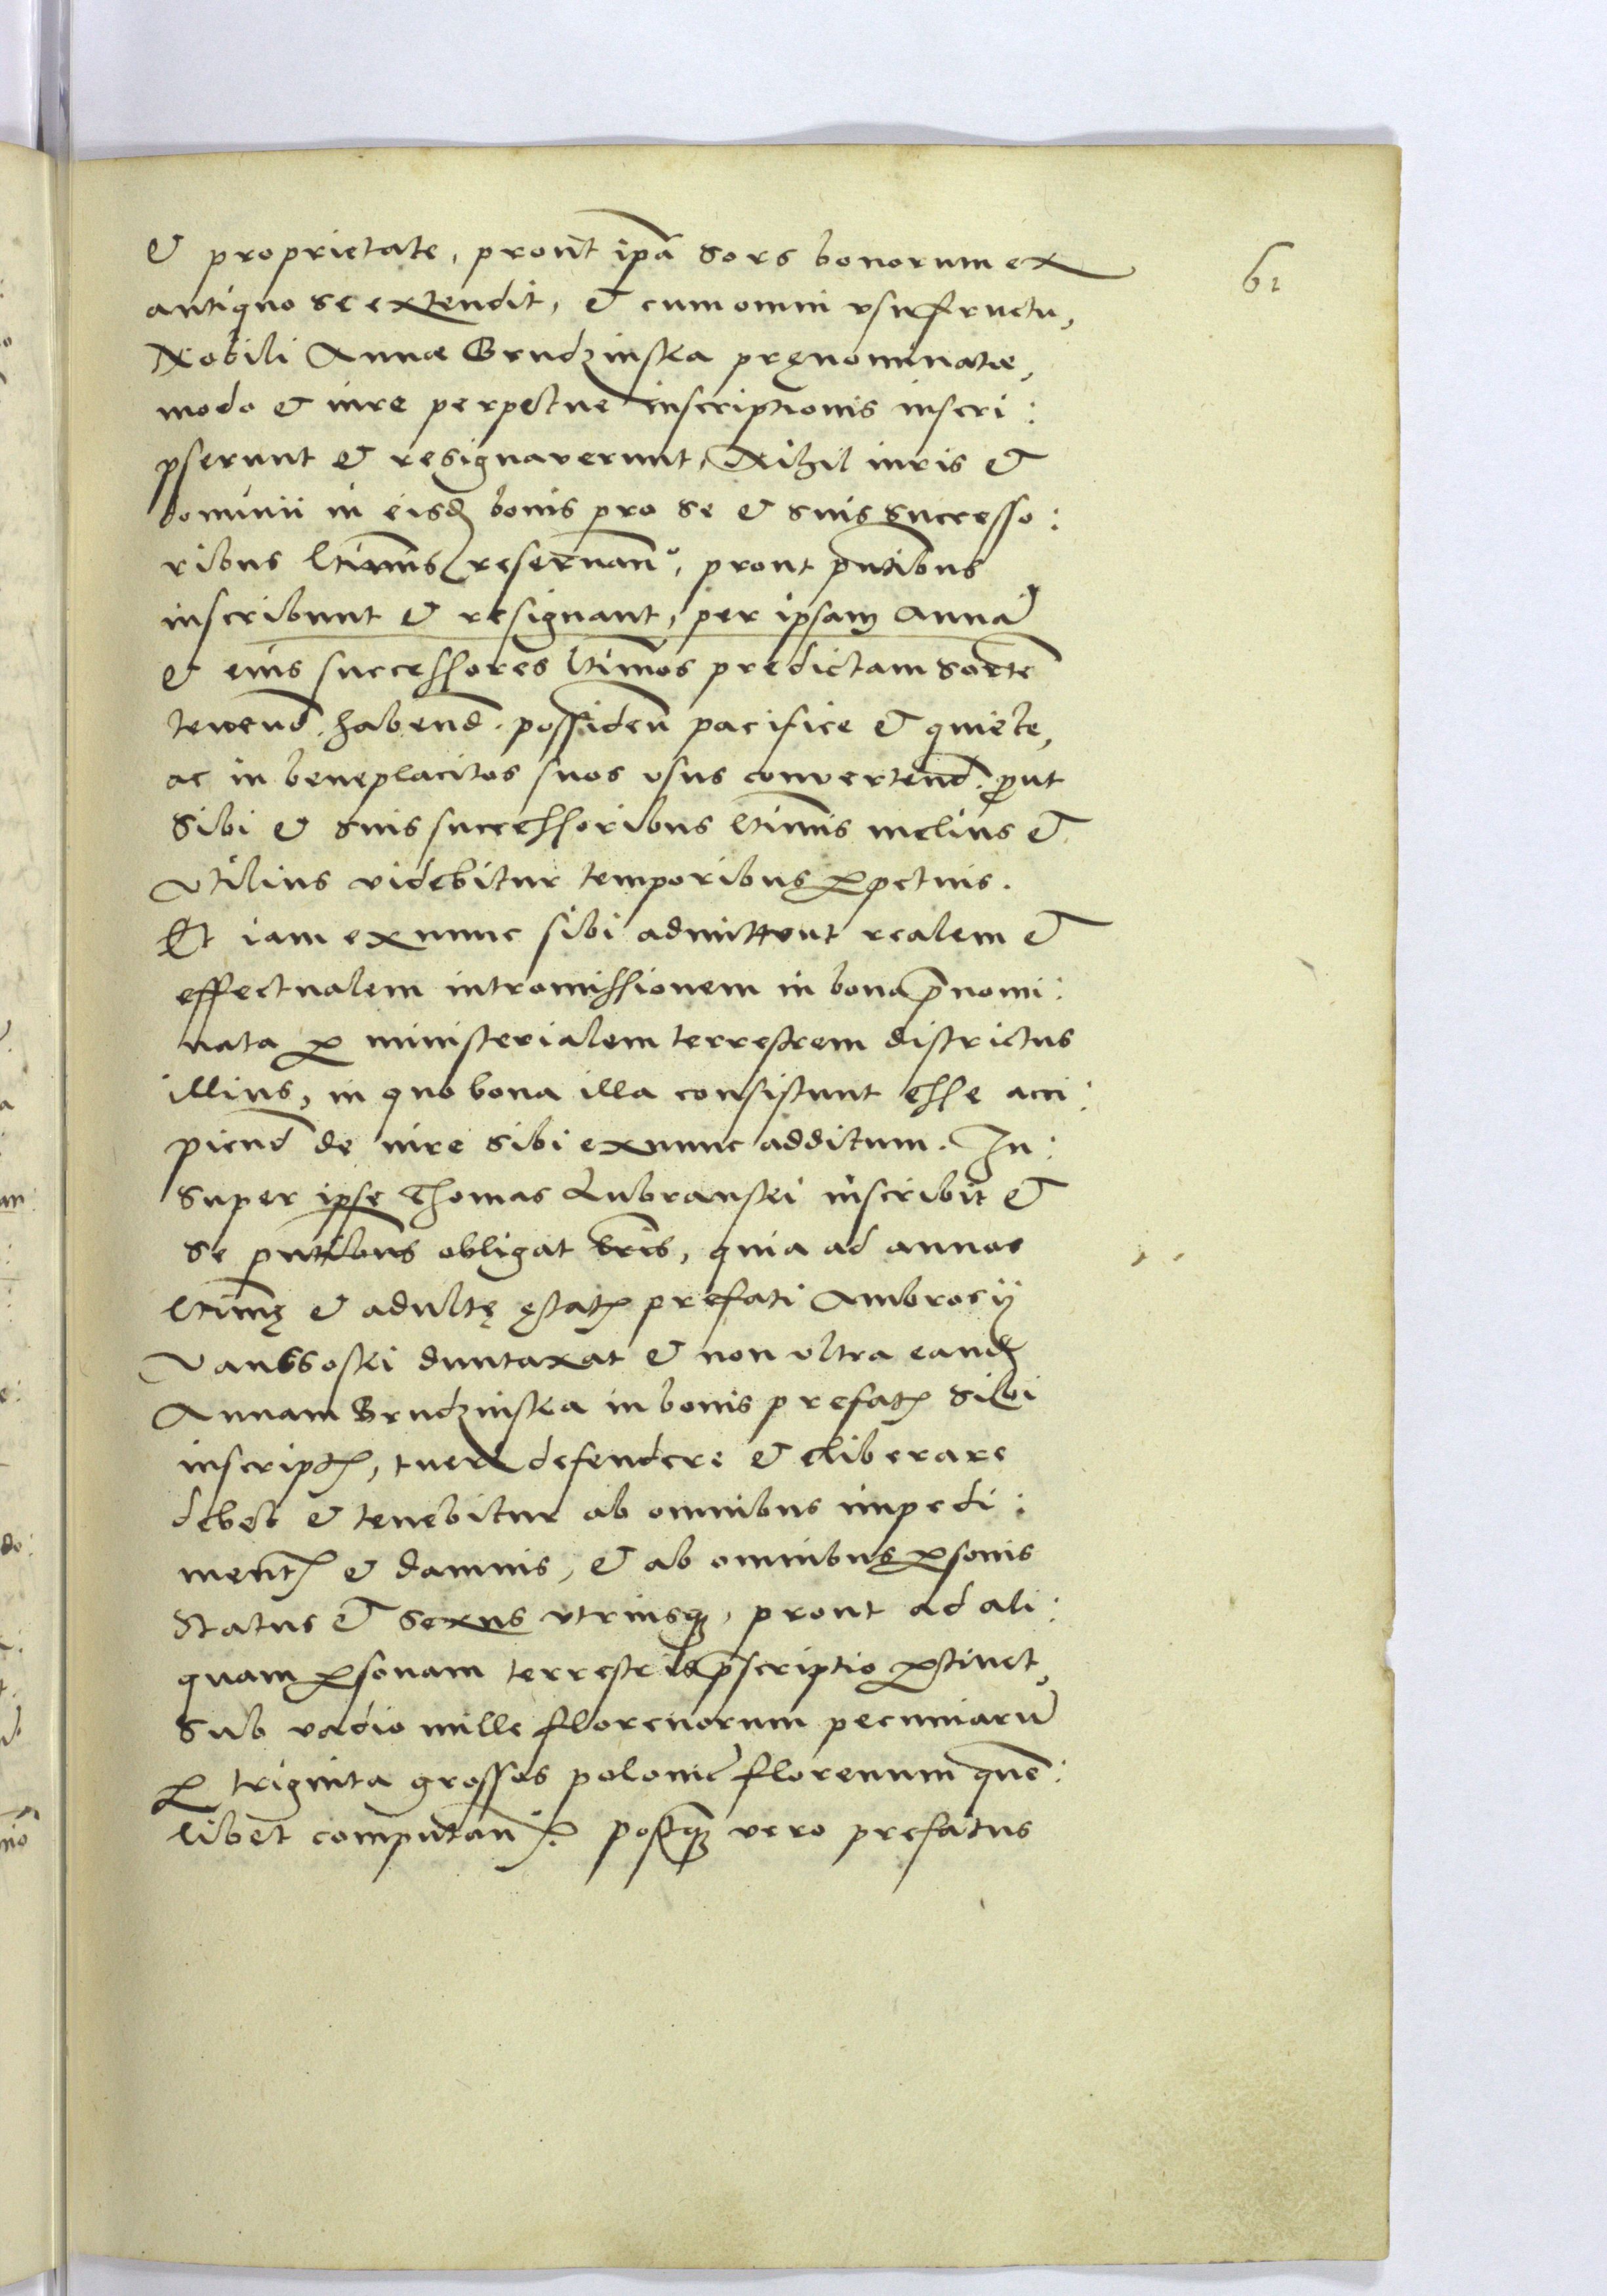 & proprietate, prout ipā sors bonorum ex
61
antiquo se extendit, & cum omni vsufructu,
Nobili Annæ Grudzinska pręnominatæ,
modo & iure perpetue inscriptionis inscri:
pserunt & resignaverunt, Nihil iuris &
dominii in eisd bonis pro se & suis successo:
ribus ltimis reservan̄, prout pn̄tibus
inscribunt & resignant, per ipsam Annā
& eius successores ltimos predictam sortē
tenend. habend. possiden̄ pacifice & quiete,
ac in beneplacitos suos usus convertend. prout
Sibi & suis successoribus ltimis melius &
Vtilius videbitur temporibus ꝑpetuis.
Et iam ex nunc sibi admittunt realem &
effectualem intromissionem in bona p̄nomi:
nata ꝑ ministerialem terrestrem districtus
illius, in quo bona illa consistunt esse acci:
piend de iure sibi ex nunc additum. In:
super ipse Thomas Lubranski inscribit &
se pn̄tibus obligat , quia ad annos
ltimę & adultę ętatꝭ prefati Ambrosij
Vanssoski duntaxat & non ultra eand
Annam Brudzinska in bonis prefatꝭ sibi
inscriptꝭ, tueri defendere & eliberare
debet & tenebitur ab omnibus impedi:
mentꝭ & damnis, & ab omnibus ꝑsonis
Status & sexus vtriusqꝫ, prout ad ali:
quam ꝑsonam terrestris p̄scriptio ꝑtinet,
Sub vadio mille florenorum pecuniarū
ꝑ triginta grossos polonic̄ florenum quē:
libet computan̄. postqꝫ vero prefatus